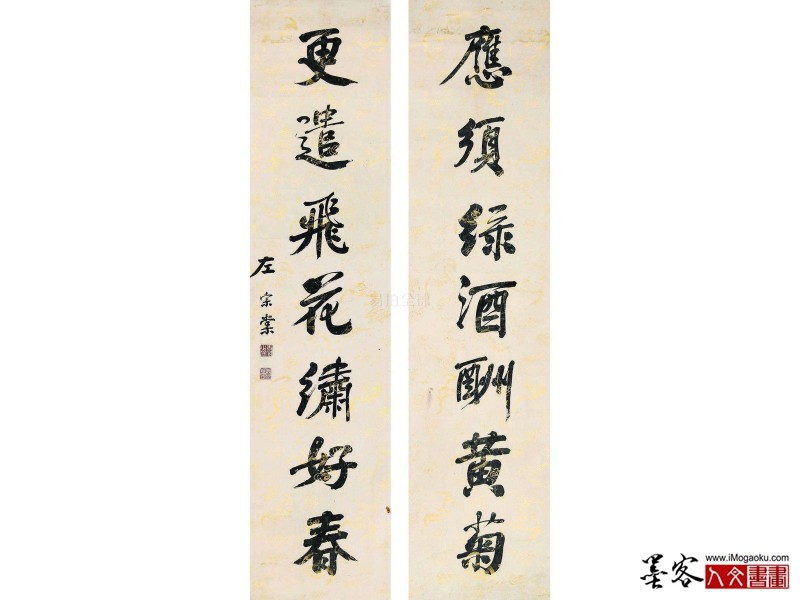 應須綠酒酬黃菊
更遣飛花繡好春
左宗棠
易拍全球
墨客
www.iMogaoku.com
人文書畫